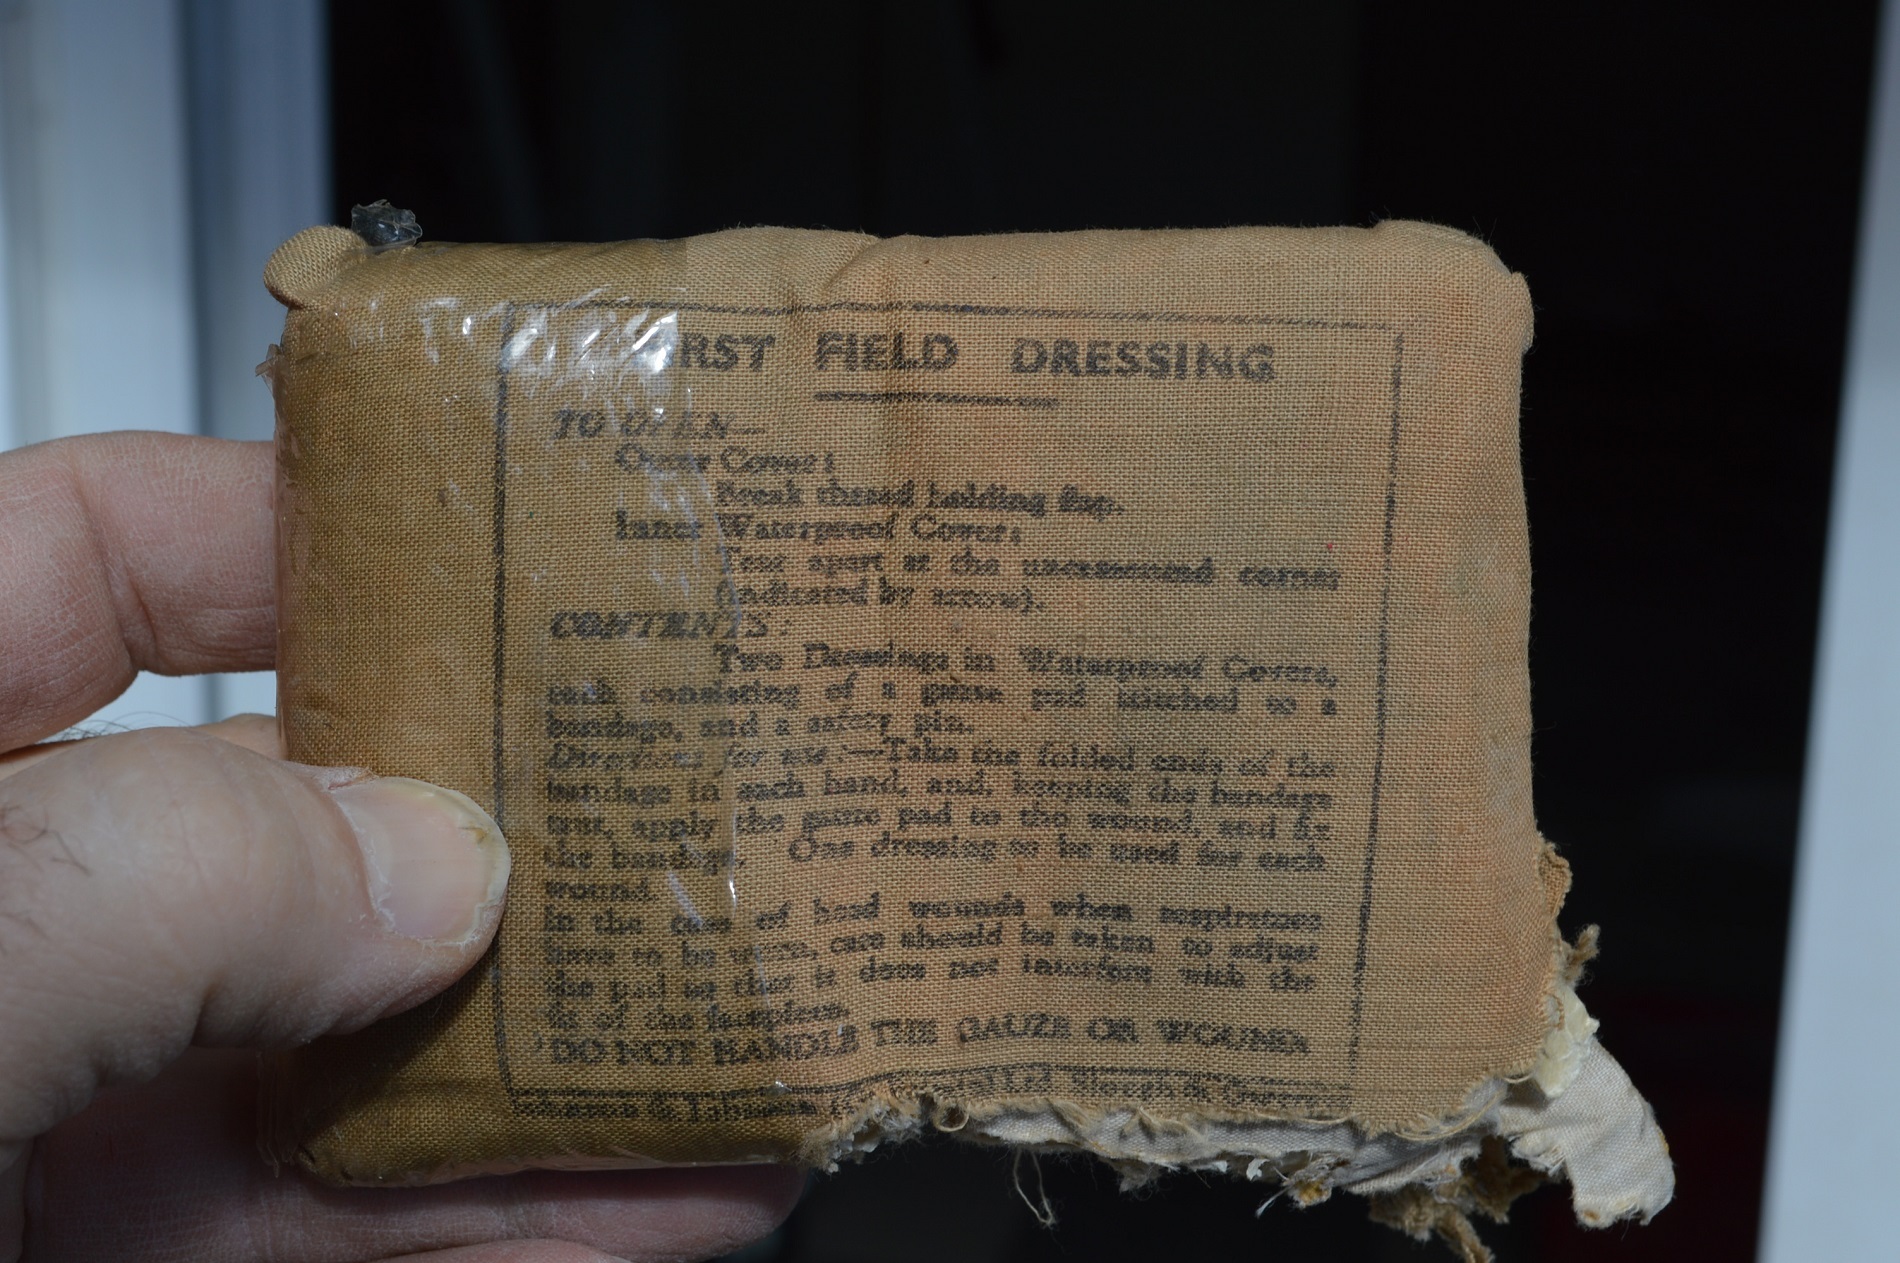 FIRST FIELD DRESSING
TO OPEN—
Outer Cover:
Break thread holding flap.
Inner Waterproof Cover:
Tear apart at the uncemented corner
(indicated by arrow).
CONTENTS:
Two Dressings in Waterproof Covers,
each consisting of a gauze pad stitched to a
bandage, and a safety pin.
Directions for use:—Take the folded ends of the
bandage in each hand, and, keeping the bandage
taut, apply the gauze pad to the wound, and fix
the bandage. One dressing to be used for each
wound.
In the case of head wounds when respirators
have to be worn, care should be taken to adjust
the pad so that it does not interfere with the
fit of the facepiece.
DO NOT HANDLE THE GAUZE OR WOUND.
Slough &